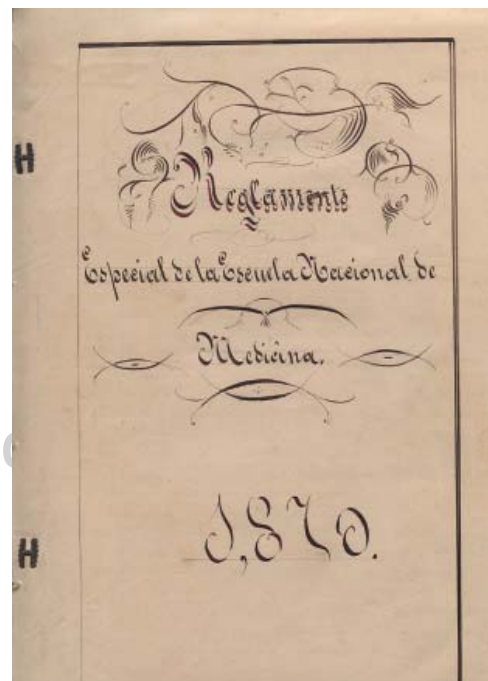 H
Reglamento
Especial de la Escuela Nacional de
Medicina.
1,870.
H